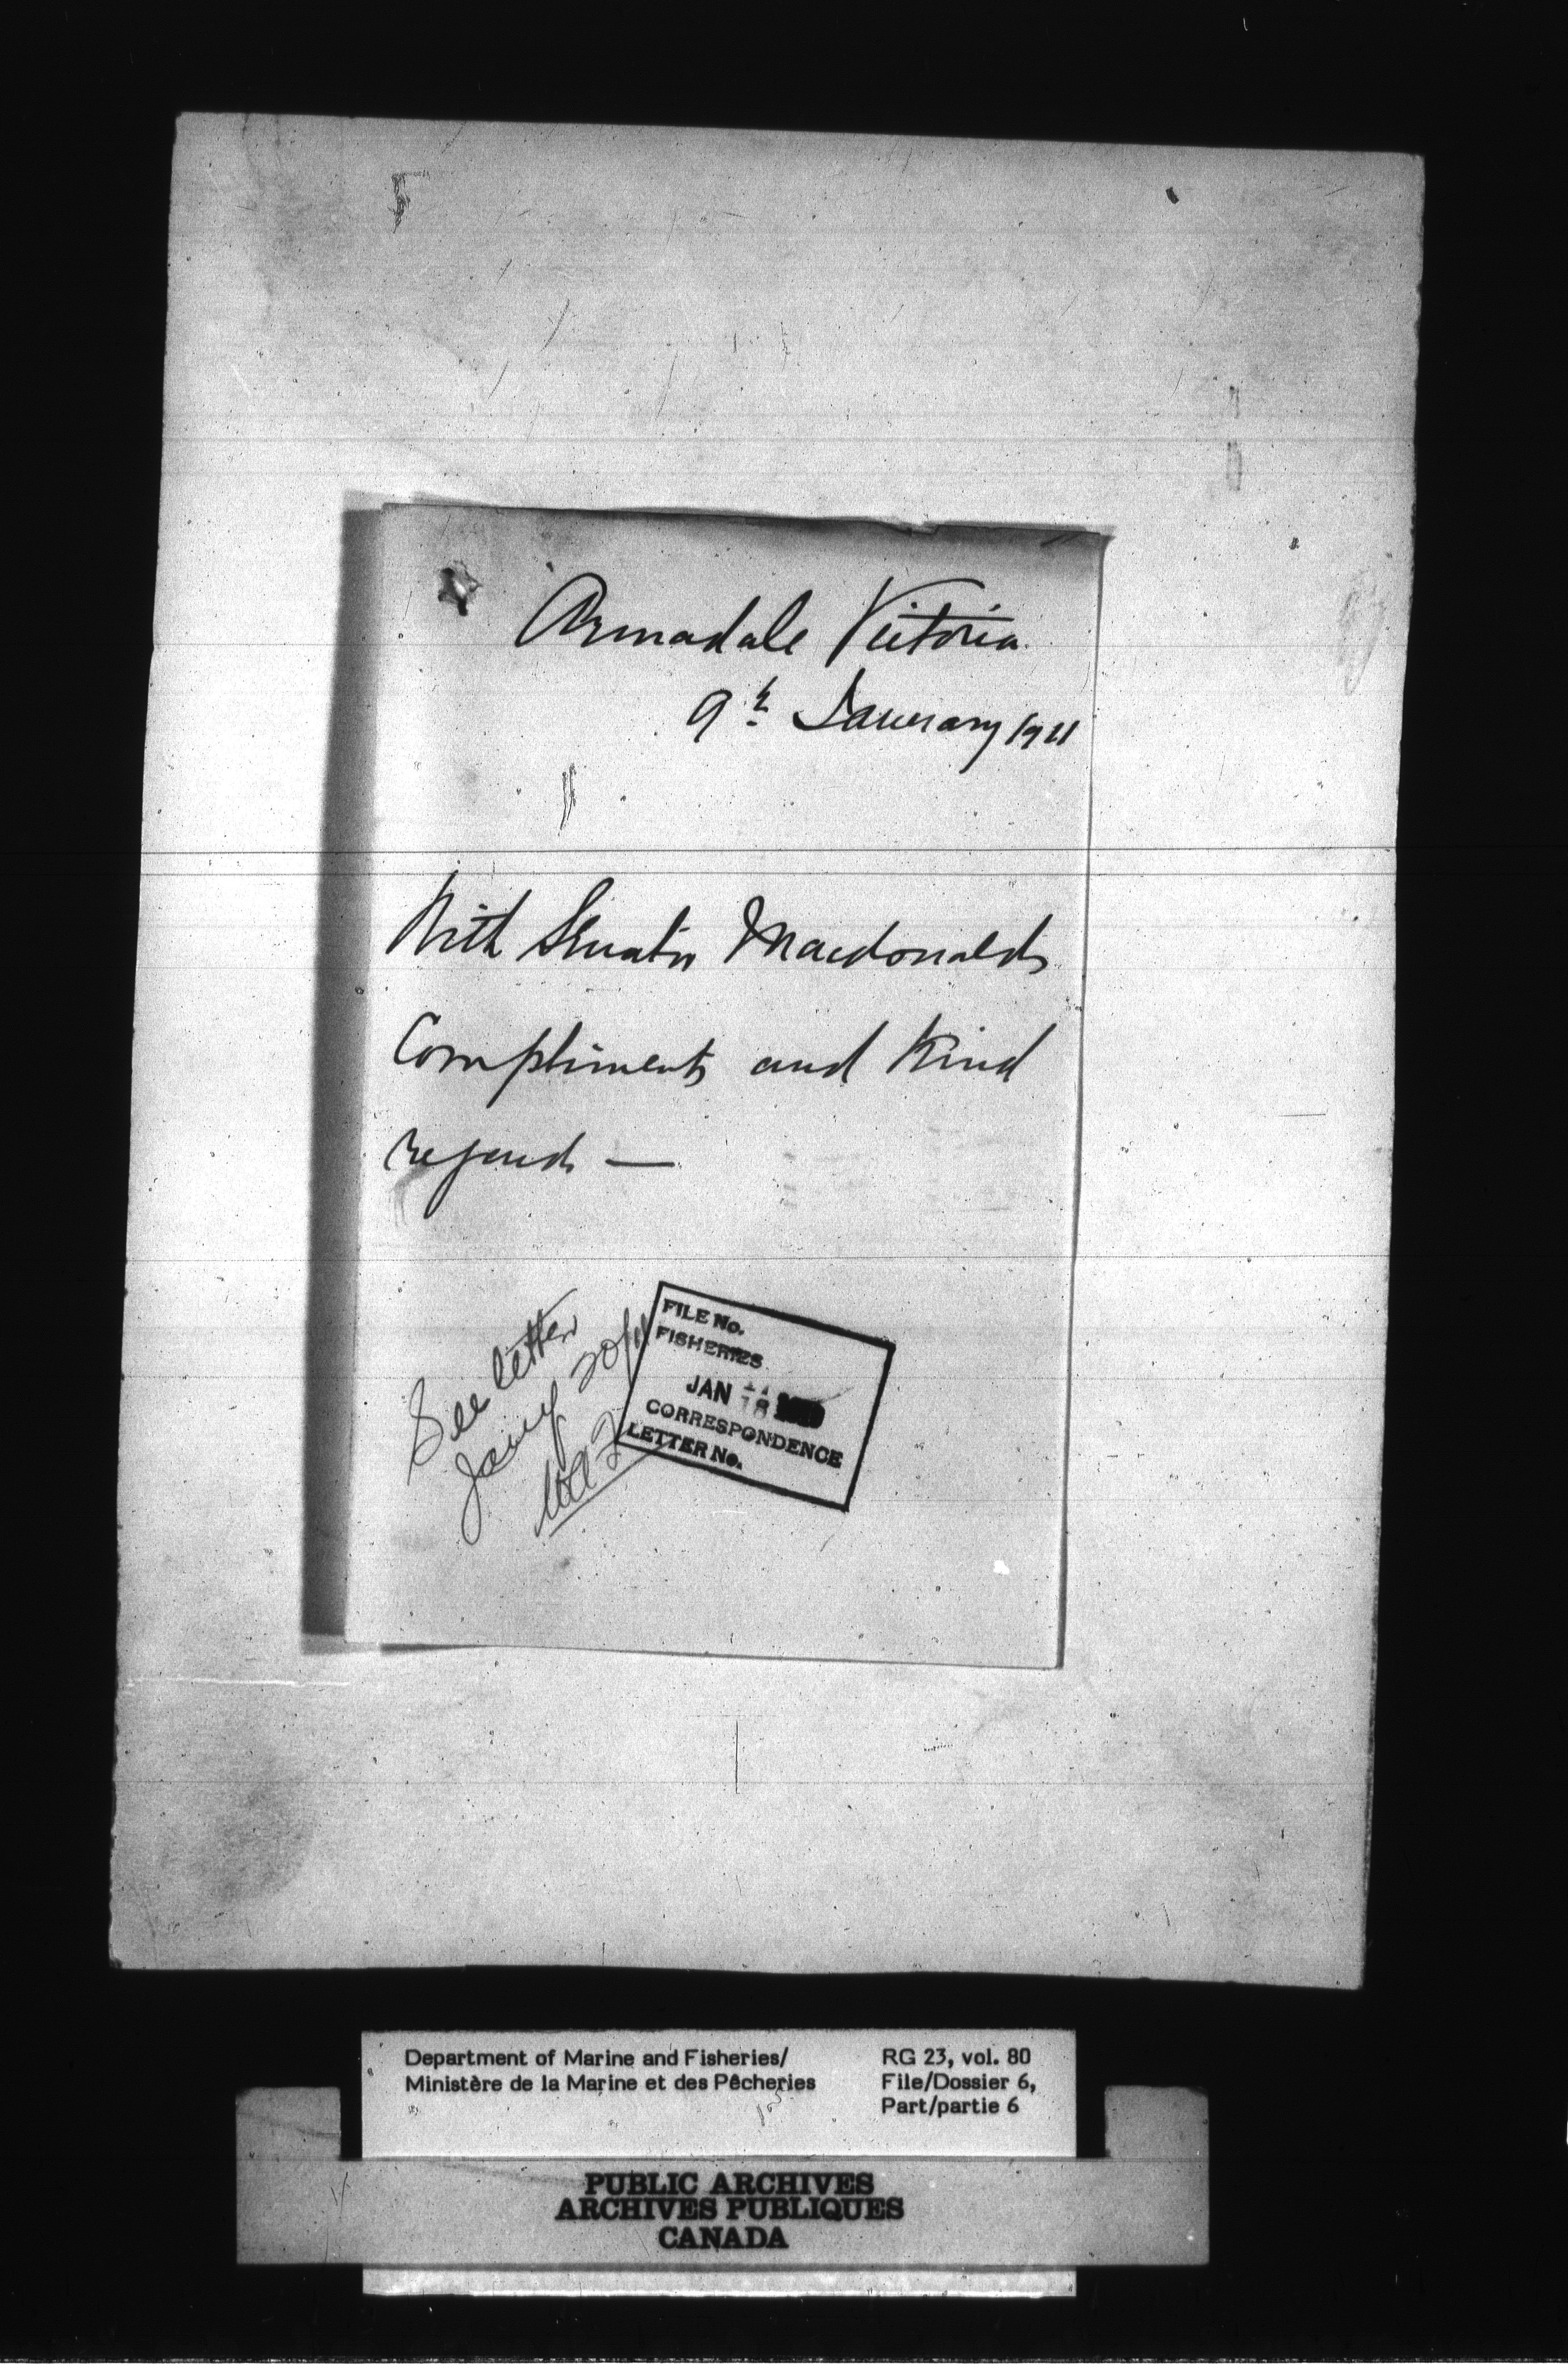 Armadale Victoria
9th January 1911
With Senator Macdonalds
Compliments and Kind
regards —
See letter
Jany 20/11
FILE No.
FISHERIES
JAN
CORRESPONDENCE
LETTER No.
Department of Marine and Fisheries/
Ministère de la Marine et des Pêcheries
RG 23, vol. 80
File/Dossier 6,
Part/partie 6
PUBLIC ARCHIVES
ARCHIVES PUBLIQUES
CANADA